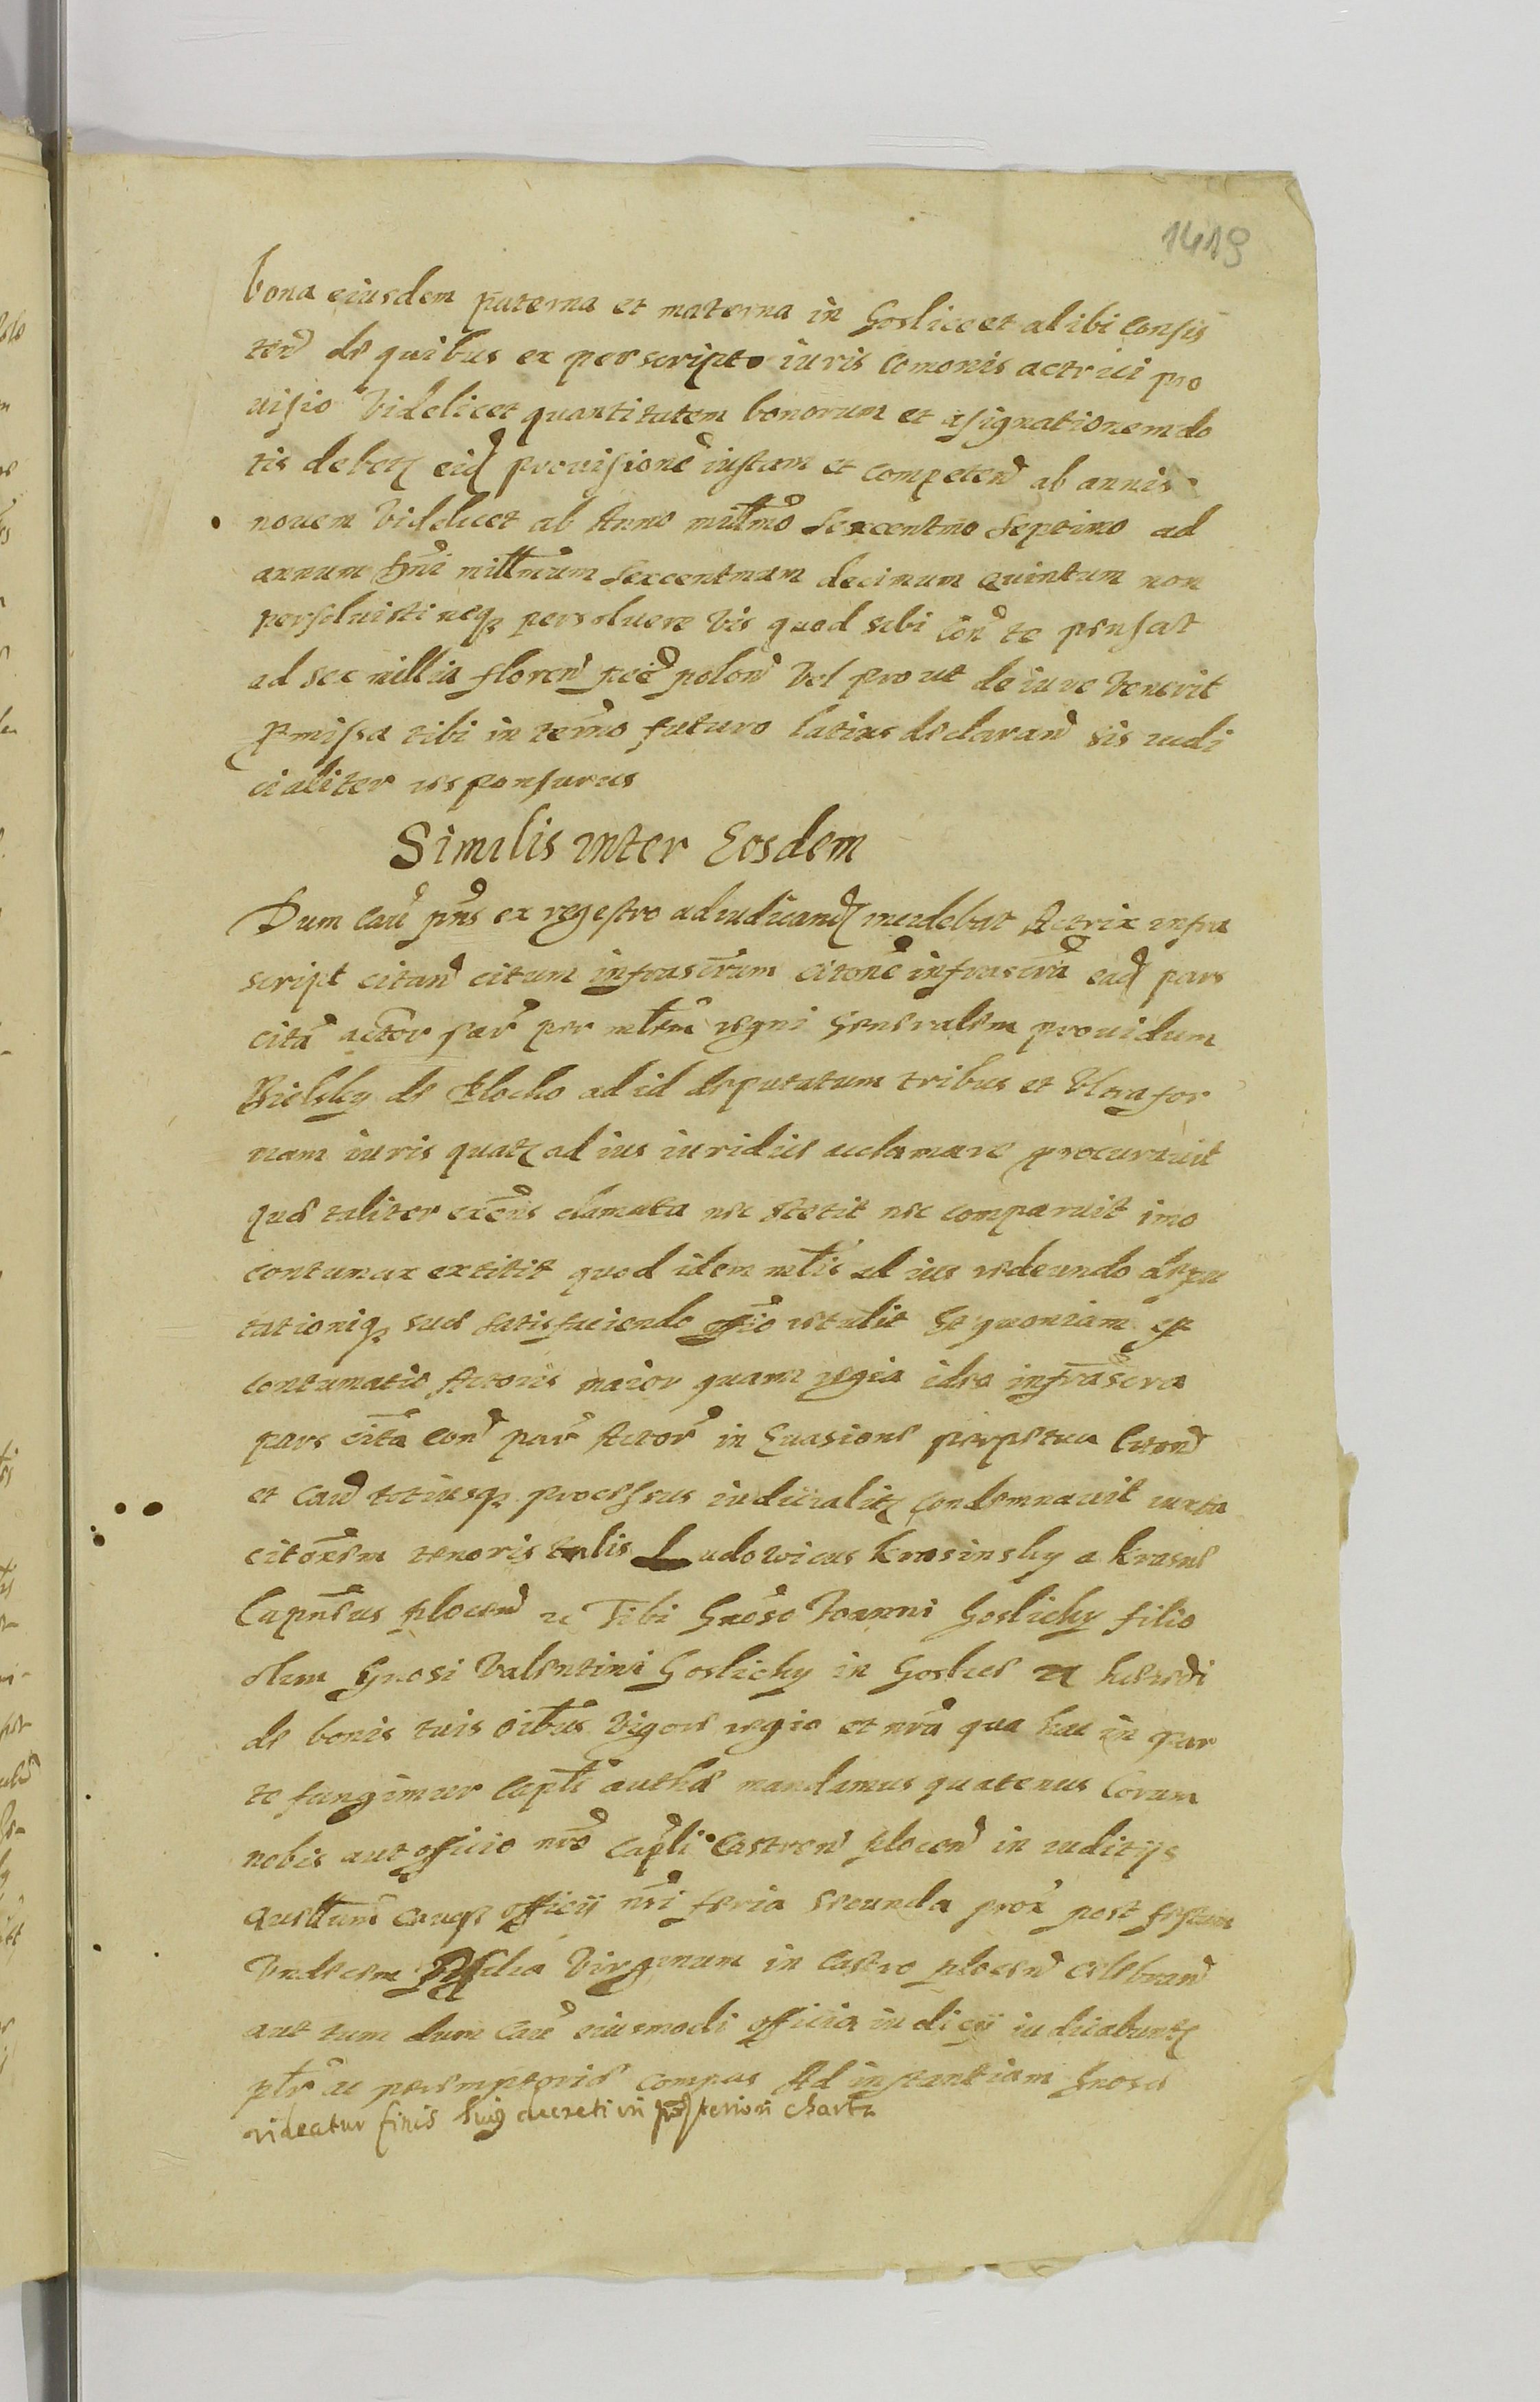 1419
bona eiusdem paterna et materna in Goslice et alibi consis
ten de quibus ex perscripto iuris comonis actrici pro
uisio Videlicet quantitatem bonorum et asignationem do
tis debetz eid prouisione iustam et competen ab annis
nouem Videlicet ab Anno millmo Sexcentmo Septimo ad
annum Dni millmum Sexcentmum decimum quintum non
persoluisti neqz persoluere Vis quod sibi con te pensat
ad sex millia floren pcie polon Vel prout de iure Venerit
Pmissa tibi in termo futuro latius declaran sis iudi
cialiter responsurus
Similis inter Eosdem
Dum cau pns ex regestro adiudicandz incidebat Actrix infra
script citan citum infrascrum citone infrascra ead pars
cita actor par per mltem regni Generalem prouidum
Bielsky de Plocko ad id deputatum tribus et Vltra for
mam iuris quatz ad ius iuridice acclamare procurauit
que taliter exens clamata nec stetit nec comparuit imo
contumax extitit quod idem mltis ad ius redeundo depu
tationiqz sue satisfaciendo offio retulit Et quoniam est
contumatie Actoris maior quam regia ideo infrascra
pars cita con par Actor in Euasione perpetua citon
et cau totiusqz processus iudicialitz condemnauit iuxta
citonem tenoris talis Ludowicus Krasinsky a Krasne
Capneus plocen zc Tibi Gneso Joanni Goslicky filio
olim Gnosi Valentini Goslicky in Goslice zc heredi
de bonis tuis oibus Vigore regia et nra qua hac in par
te fungimur Capli authe mandamus quatenus Coram
nobis aut officio nro Capli Castren plocen in iuditijs
officij nri feria secunda prox post festum
Vndecem Virginum in Castro plocen celebran
aut tum dum cau eiusmodi officia iudicij iudicabuntz
pltr ac peremptorie compas Ad instantiam Gnose
videatur finis huig decreti in posteriori charta